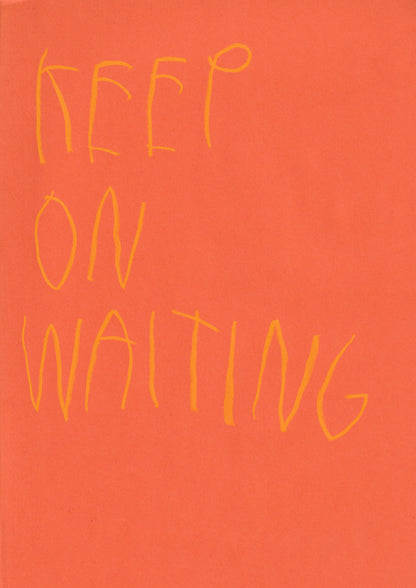 KEEP
ON
WAITING